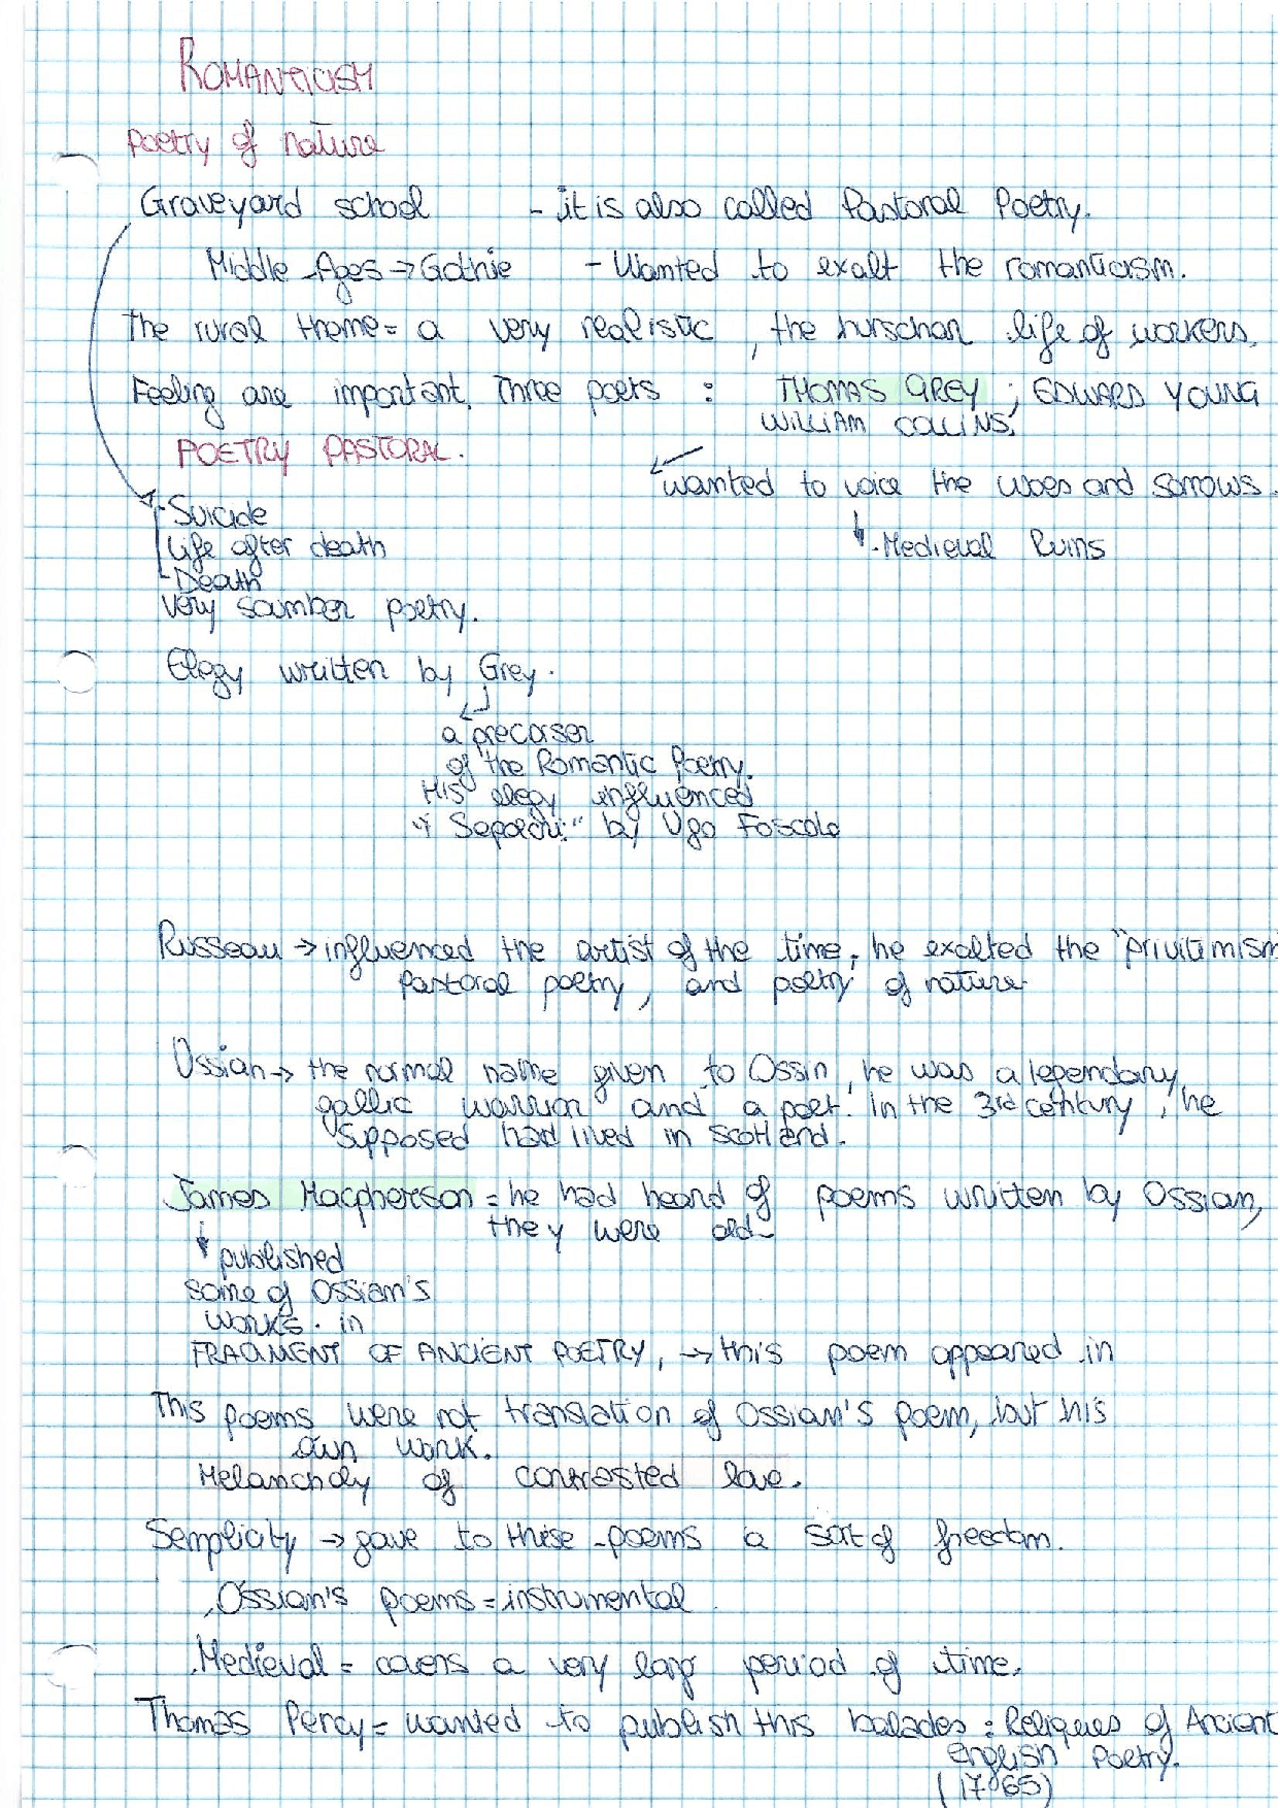 ROMANTICISM
Poetry of nature
Graveyard school - it is also called Pastoral Poetry.
Middle Ages → Gothic - Wanted to exalt the romanticism.
The rural theme = a very realistic, the life of workers.
Feeling are important. Three poets : THOMAS GREY ; EDWARD YOUNG
WILLIAM COLLINS.
POETRY PASTORAL.
wanted to voice the woes and sorrows.
- Suicide
Life after death
- Medieval Ruins
- Death
Very soumber poetry.
Elegy written by Grey.
a precorser
of the Romantic Poetry.
His elegy influenced
"I Sepolcri" by Ugo Foscolo
Russeau → influenced the artist of the time, he exalted the "privitimism
Pastoral poetry, and poetry of nature.
Ossian → the normal name given to Ossin, he was a legendary
gallic warrior and a poet. In the 3rd century, he
supposed had lived in Scotland.
James Macpherson = he had heard of poems written by Ossian,
they were old
published
some of Ossian's
works. in
FRAGMENT OF ANCIENT POETRY, → this poem appeared in
This poems were not translation of Ossian's poem, but his
own work.
Melancholy of contrasted love.
Semplicity → gave to these poems a sort of freedom.
Ossian's poems = instrumental
Medieval = covers a very larg period of time.
Thomas Percy = wanted to publish this balades : Reliques of Ancient
English Poetry.
(1765)